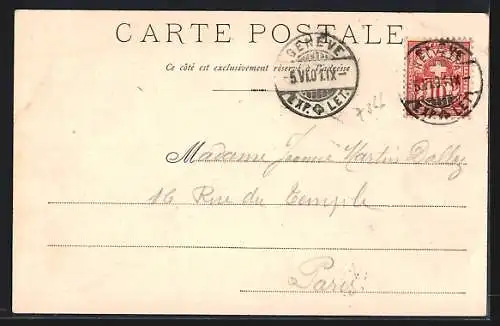 CARTE POSTALE
Ce côté est exclusivement réservé à l'adresse
GENÈVE
-5.VI.01.IX-
EXP. LET.
GENÈVE
10
EXP. LET.
Madame Jeanne Martin
16 Rue du Temple
Paris